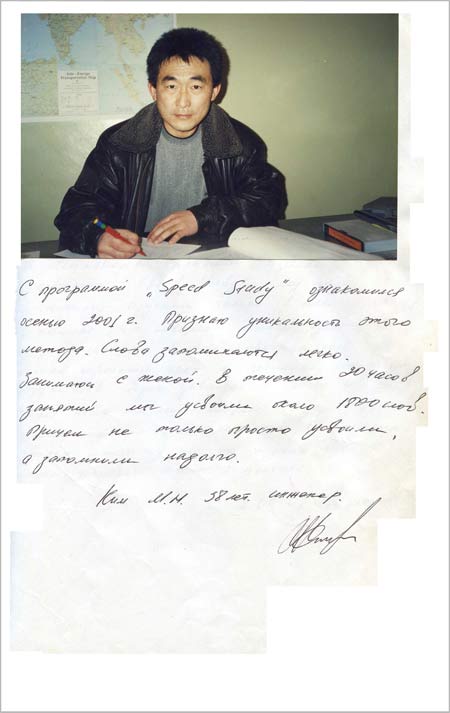 Asia - Europe
Transportation Map
С программой „Speed Study" ознакомился
осенью 2001 г. Признаю уникальность этого
метода. Слова запоминаются легко.
Занимаюсь с женой. В течении 20 часов
занятий мы усвоили около 1800 слов.
Причем не только просто усвоили,
а запомнили надолго.
Ким М.Н. 38 лет. инженер.